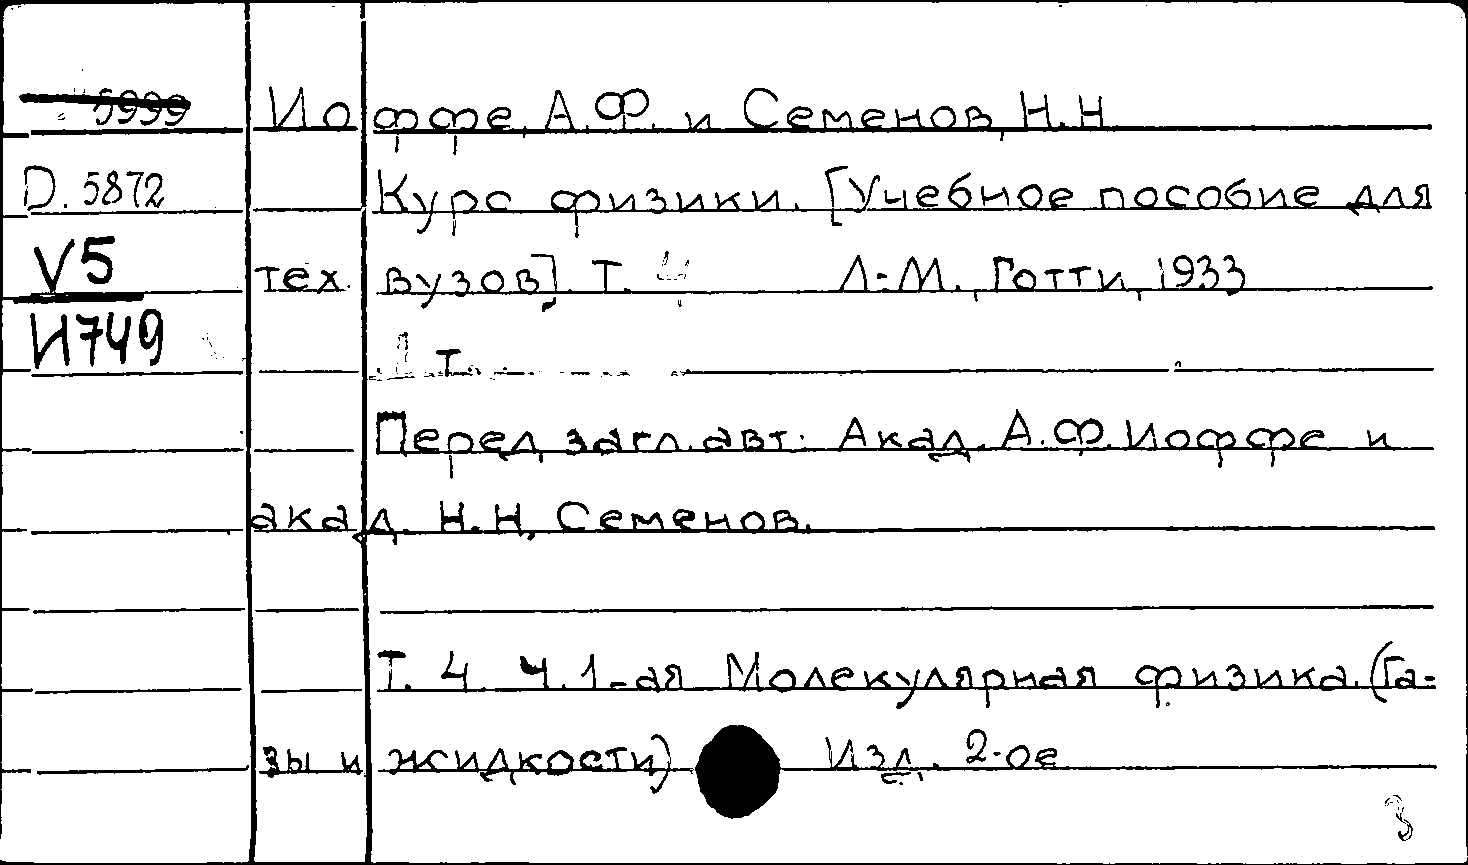 5999
Иоффе, А.Ф. и Семенов, Н.Н
D. 5872
Курс физики. [Учебное пособие для
V5
тех. вузов]. Т. 4 Л-М., Готти, 1933
И749
1 т.
Перед загл. авт: Акад. А.Ф. Иоффе и
акад. Н.Н. Семенов.
Т. 4. Ч. 1-ая Молекулярная физика. (Га-
зы и жидкости) Изд. 2-ое
3